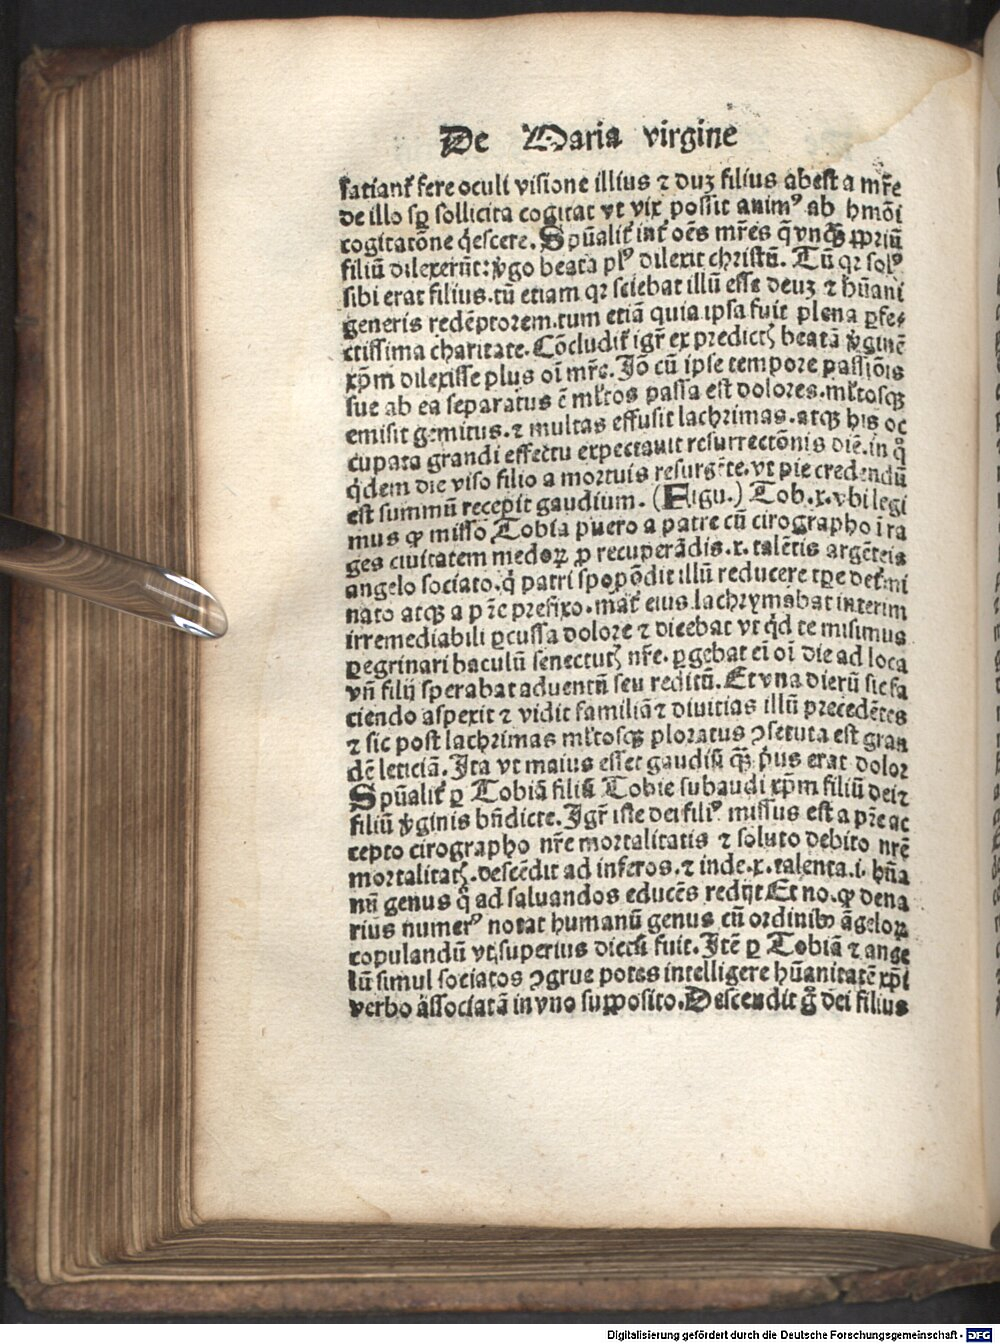 De Maria virgine
satiant᷑ fere oculi visione illius ⁊ duꝫ filius abest a mr̃e
de illo sꝑ sollicita cogitat vt vix possit animꝰ ab hmõi
cogitatõne q̇escere. Spũalit᷑ int᷑ oẽs mr̃es q̃ vnqꝫ ꝓpriũ
filiũ dilexerũt: v̇go beata plꝰ dilexit christũ. Tũ qꝛ solꝰ
sibi erat filius. tũ etiam qꝛ sciebat illũ esse deuꝫ ⁊ hũani
generis redẽptorem. tum etiã quia ipsa fuit plena ꝑfe⸗
ctissima charitate. Cõcludit᷑ igr̃ ex predictꝭ beatã v̇ginẽ
xp̃m dilexisse plus oĩ mr̃e. Jõ cũ ipse tempore passiõis
sue ab ea separatus ẽ ml̃tos passa est dolores. ml̃tosqꝫ
emisit gemitus. ⁊ multas effusit lachrimas. atqꝫ his oc
cupata grandi effectu expectauit resurrectõnis diẽ. in q̊
q̇dem die viso filio a mortuis resurgẽte. vt pie credendũ
est summũ recepit gaudium. (Figu.) Tob. x. vbi legi
mus ꝙ misso Tobia puero a patre cũ cirographo ĩ ra
ges ciuitatem medoꝝ ꝓ recuperãdis. x. talẽtis argẽteis
angelo sociato. q̇ patri spopõdit illũ reducere tp̃e det᷑mi
nato atqꝫ a pr̃e prefixo. mat᷑ eius lachrymabat interim
irremediabili ꝑcussa dolore ⁊ dicebat vt qͥd te misimus
ꝑegrinari baculũ senectutꝭ nr̃e. ꝑgebat eĩ oĩ die ad loca
vñ filij sperabat aduentũ seu reditũ. Et vna dierũ sic fa
ciendo aspexit ⁊ vidit familiã ⁊ diuitias illũ precedẽtes
⁊ sic post lachrimas ml̃tosqꝫ ploratus ↄsecuta est gran
dẽ leticiã. Jta vt maius esset gaudiũ qꝫ̃ p̓us erat dolor
Spũalit᷑ ꝑ Tobiã filiũ Tobie subaudi xp̃m filiũ dei ⁊
filiũ v̇ginis bñdicte. Jgr̃ iste dei filiꝰ missus est a pr̃e ac
cepto cirographo nr̃e mortalitatis ⁊ soluto debito nr̃ẽ
mortalitatꝭ. descẽdit ad inferos. ⁊ inde. x. talenta .i. hũa
nũ genus q̃ ad saluandos educẽs redijt Et no. ꝙ dena
rius numerꝰ notat humanũ genus cũ ordinibꝰ ãgeloꝝ
copulandũ vt superius dictũ fuit. Jtẽ ꝑ Tobiã ⁊ ange
lũ simul sociatos ↄgrue potes intelligere hũanitatẽ xp̃i
verbo ãssociatã in vno supposito. Descendit g̊ dei filius
Digitalisierung gefördert durch die Deutsche Forschungsgemeinschaft - DFG